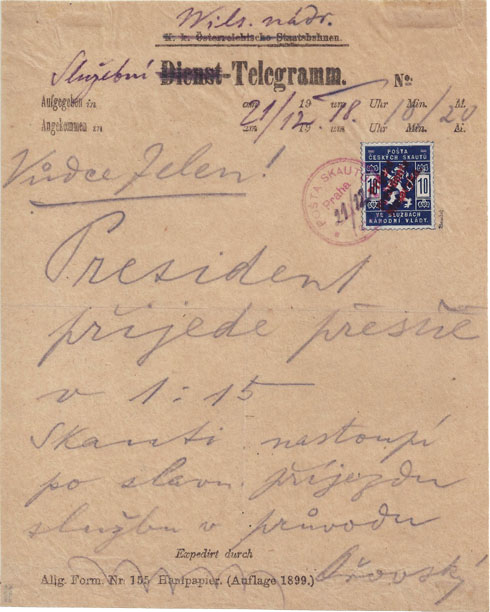 Wils. nádr.
K. k. Österreichische Staatsbahnen.
Služební Dienst-Telegramm. No.
Aufgegeben in am 21/12 19 18. um Uhr 10/20 Min. M.
Angekommen in am 19 um Uhr Min. M.
Vůdce Jelen!
POŠTA
ČESKÝCH SKAUTŮ
10 10
VE SLUŽBÁCH
NÁRODNÍ VLÁDY.
POŠTA SKAUT
Praha
21/12
President
přijede přesně
v 1:15
Skauti nastoupí
po slavn. příjezdu
službu v průvodu
Expedirt durch
Allg. Form. Nr. 155 Hanfpapier. (Auflage 1899.)